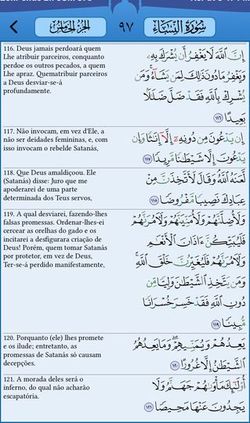 الجزء الخامس
٩٧
سورة النساء
116. Deus jamais perdoará quem
Lhe atribuir parceiros, conquanto
perdoe os outros pecados, a quem
Lhe apraz. Quematribuir parceiros
a Deus desviar-se-á
profundamente.
إِنَّ ٱللَّهَ لَا يَغْفِرُ أَن يُشْرَكَ بِهِۦ
وَيَغْفِرُ مَا دُونَ ذَٰلِكَ لِمَن يَشَآءُ ۚ وَمَن
يُشْرِكْ بِٱللَّهِ فَقَدْ ضَلَّ ضَلَٰلًۢا
بَعِيدًا ١١٦
117. Não invocam, em vez d'Ele, a
não ser deidades femininas, e, com
isso invocam o rebelde Satanás,
إِن يَدْعُونَ مِن دُونِهِۦٓ إِلَّآ إِنَٰثًا وَإِن
يَدْعُونَ إِلَّا شَيْطَٰنًا مَّرِيدًا ١١٧
118. Que Deus amaldiçoou. Ele
(Satanás) disse: Juro que me
apoderarei de uma parte
determinada dos Teus servos,
لَّعَنَهُ ٱللَّهُ ۘ وَقَالَ لَأَتَّخِذَنَّ مِنْ
عِبَادِكَ نَصِيبًا مَّفْرُوضًا ١١٨
119. A qual desviarei, fazendo-lhes
falsas promessas. Ordenar-lhes-ei
cercear as orelhas do gado e os
incitarei a desfigurara criação de
Deus! Porém, quem tomar Satanás
por protetor, em vez de Deus,
Ter-se-á perdido manifestamente,
وَلَأُضِلَّنَّهُمْ وَلَأُمَنِّيَنَّهُمْ وَلَءَامُرَنَّهُمْ
فَلَيُبَتِّكُنَّ ءَاذَانَ ٱلْأَنْعَٰمِ
وَلَءَامُرَنَّهُمْ فَلَيُغَيِّرُنَّ خَلْقَ ٱللَّهِ ۚ
وَمَن يَتَّخِذِ ٱلشَّيْطَٰنَ وَلِيًّا مِّن
دُونِ ٱللَّهِ فَقَدْ خَسِرَ خُسْرَانًا
مُّبِينًا ١١٩
120. Porquanto (ele) lhes promete
e os ilude; entretanto, as
promessas de Satanás só causam
decepções.
يَعِدُهُمْ وَيُمَنِّيهِمْ ۖ وَمَا يَعِدُهُمُ
ٱلشَّيْطَٰنُ إِلَّا غُرُورًا ١٢٠
121. A morada deles será o
inferno, do qual não acharão
escapatória.
أُو۟لَٰٓئِكَ مَأْوَىٰهُمْ جَهَنَّمُ وَلَا
يَجِدُونَ عَنْهَا مَحِيصًا ١٢١